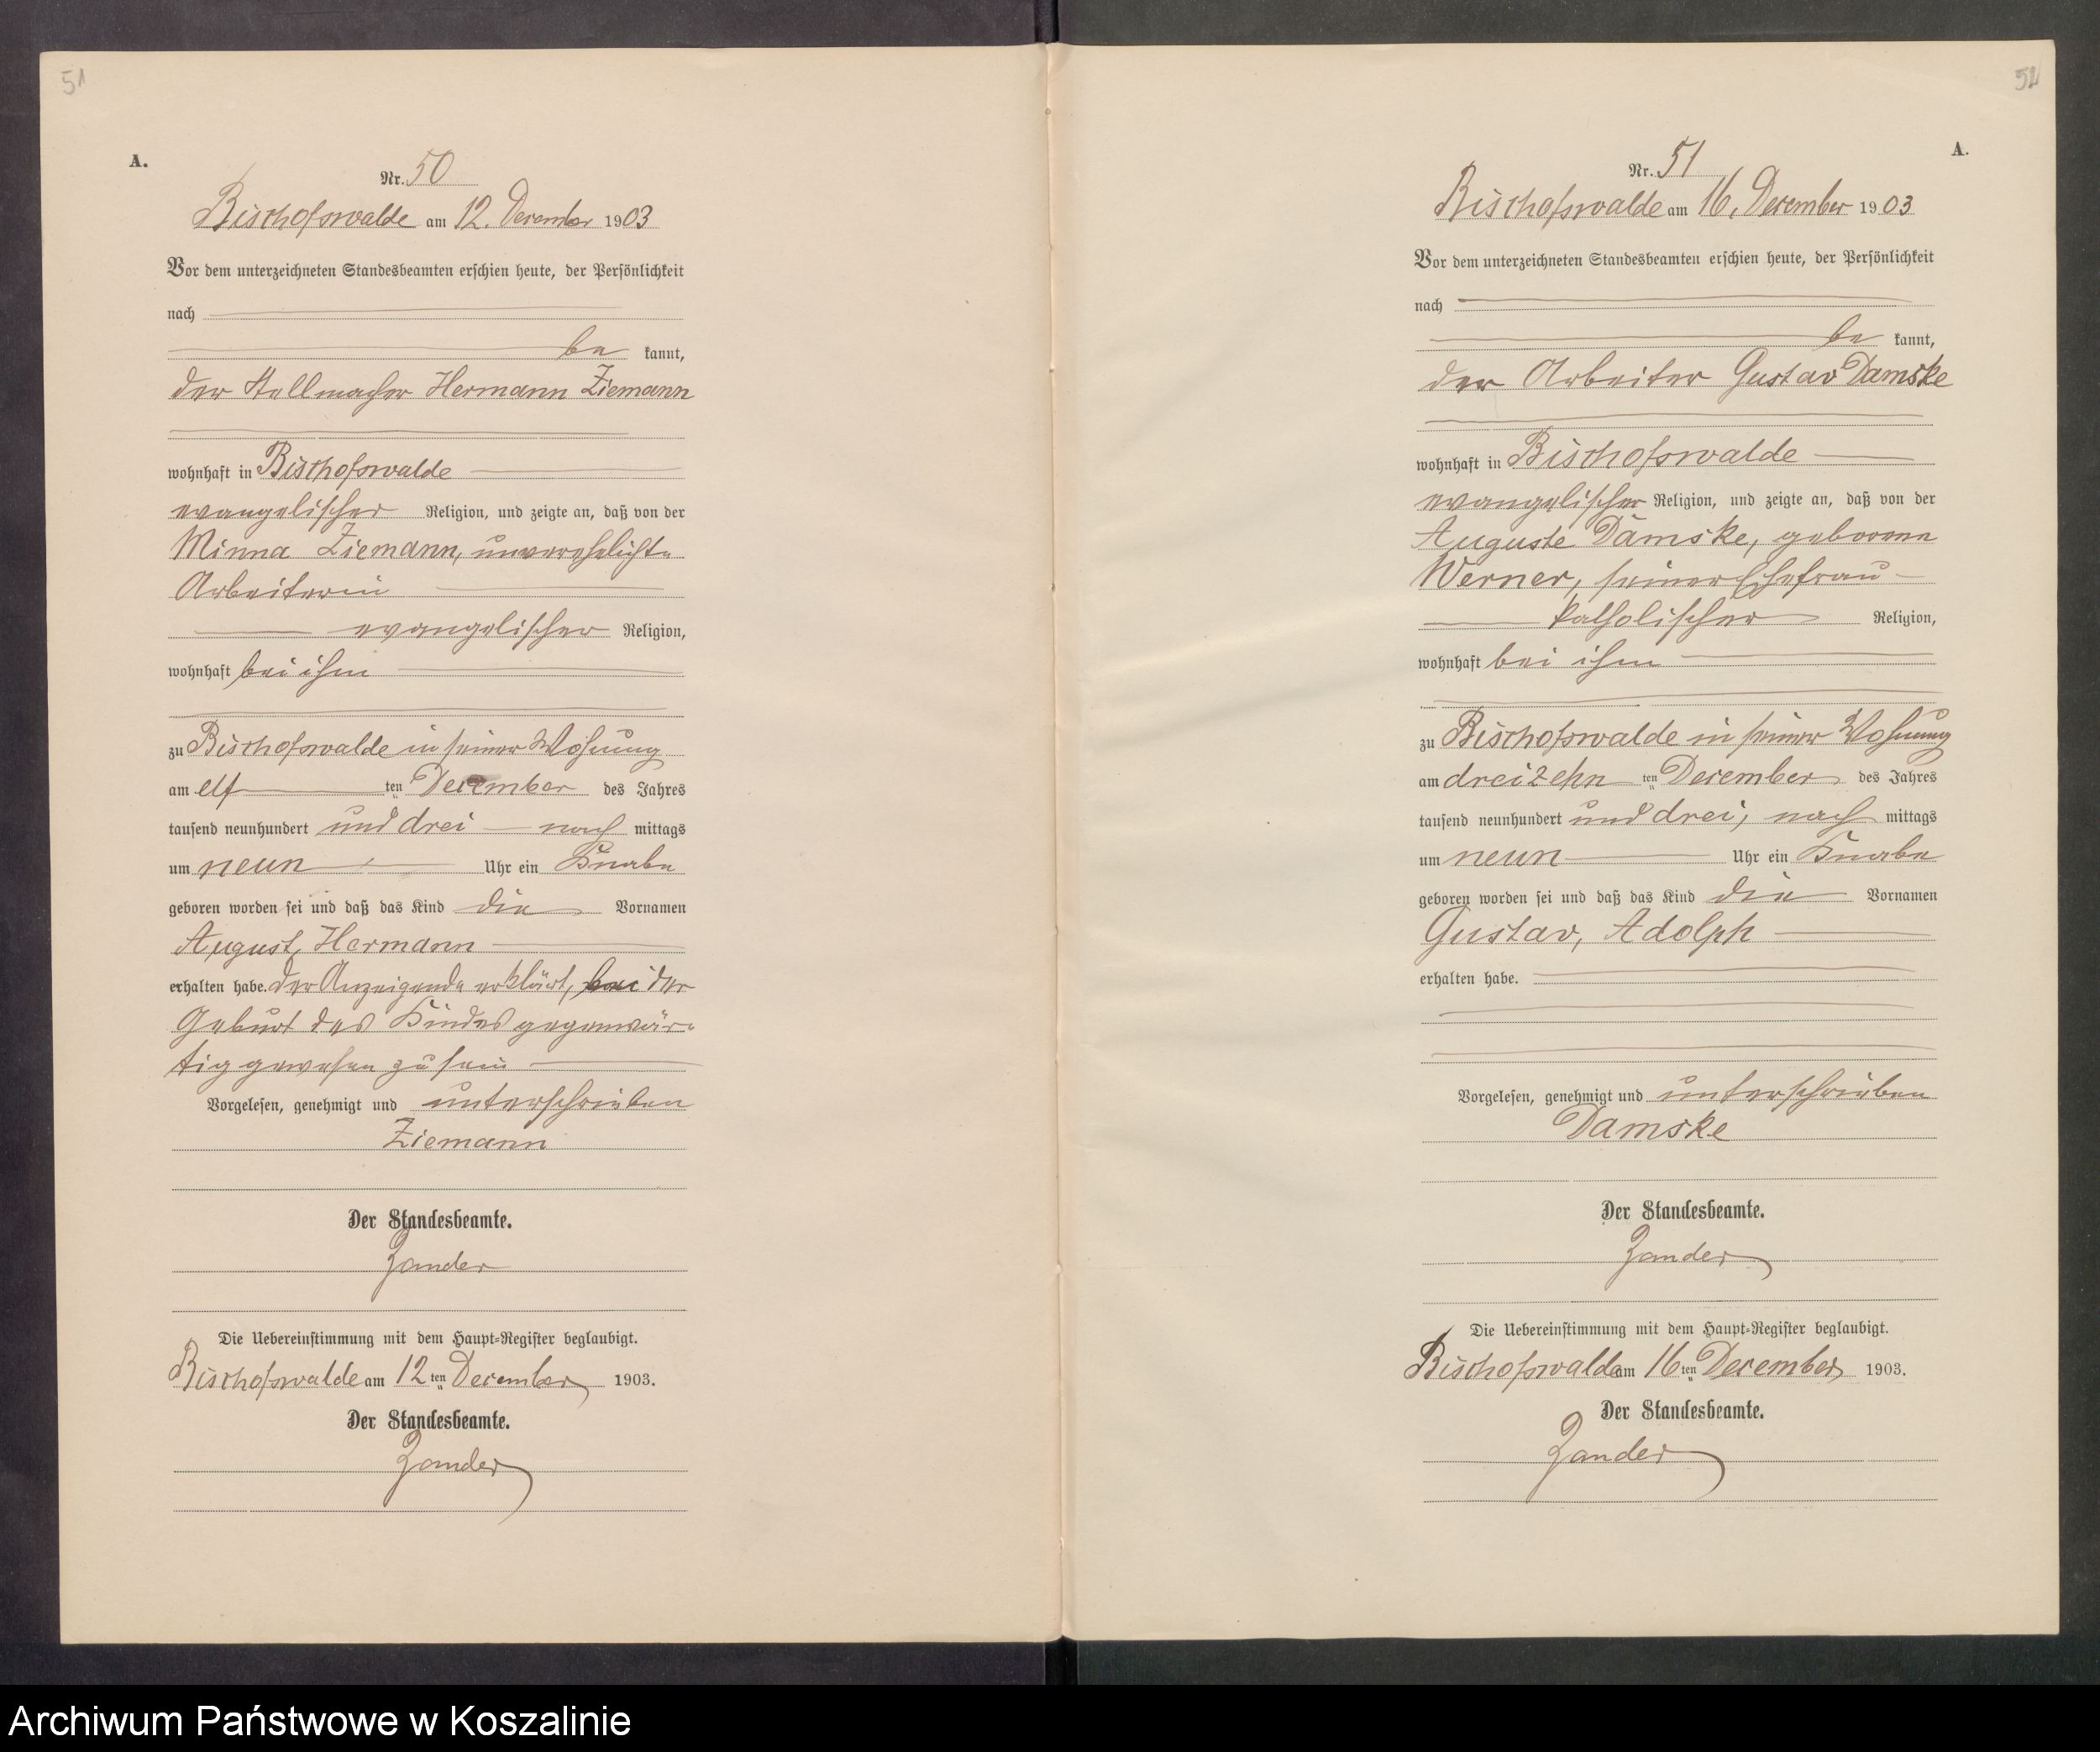 51
A.
Nr. 50
Bischofswalde am 12. December 1903
Vor dem unterzeichneten Standesbeamten erschien heute, der Persönlichkeit
nach
be kannt,
der Stellmacher Hermann Ziemann
wohnhaft in Bischofswalde
evangelischer Religion, und zeigte an, daß von der
Minna Ziemann, unverehelichte
Arbeiterin
evangelischer Religion,
wohnhaft bei ihm
zu Bischofswalde in seiner Wohnung
am elf ten December des Jahres
tausend neunhundert und drei nach mittags
um neun Uhr ein Knabe
geboren worden sei und daß das Kind die Vornamen
August, Hermann
erhalten habe. Der Anzeigende erklärt, bei der
Geburt des Kindes gegenwär-
tig gewesen zu sein
Vorgelesen, genehmigt und unterschrieben
Ziemann
Der Standesbeamte.
Zander
Die Uebereinstimmung mit dem Haupt-Register beglaubigt.
Bischofswalde am 12 ten December 1903.
Der Standesbeamte.
Zander
52
A.
Nr. 51
Bischofswalde am 16. December 1903
Vor dem unterzeichneten Standesbeamten erschien heute, der Persönlichkeit
nach
be kannt,
der Arbeiter Gustav Damske
wohnhaft in Bischofswalde
evangelischer Religion, und zeigte an, daß von der
Auguste Damske, geborene
Werner, seiner Ehefrau
katholischer Religion,
wohnhaft bei ihm
zu Bischofswalde in seiner Wohnung
am dreizehn ten December des Jahres
tausend neunhundert und drei, nach mittags
um neun Uhr ein Knabe
geboren worden sei und daß das Kind die Vornamen
Gustav, Adolph
erhalten habe.
Vorgelesen, genehmigt und unterschrieben
Damske
Der Standesbeamte.
Zander
Die Uebereinstimmung mit dem Haupt-Register beglaubigt.
Bischofswalde am 16 ten December 1903.
Der Standesbeamte.
Zander
Archiwum Państwowe w Koszalinie